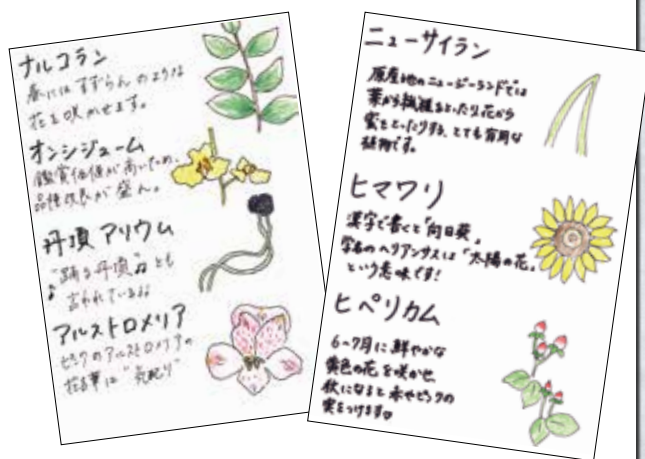 ナルコラン
春にはすずらんのような
花を咲かせます。
オンシジューム
鑑賞価値が高いため、
品種改良が盛ん。
丹頂アリウム
"踊る丹頂"とも
言われている♪♪
アルストロメリア
ピンクのアルストロメリアの
花言葉は"気配り"
ニューサイラン
原産地のニュージーランドでは
葉から繊維をとったり花から
蜜をとったりする、とても有用な
植物です。
ヒマワリ
漢字で書くと「向日葵」
学名のヘリアンサスは「太陽の花」
という意味です!
ヒペリカム
6〜7月に鮮やかな
黄色の花を咲かせ
秋になると赤やピンクの
実をつけます。